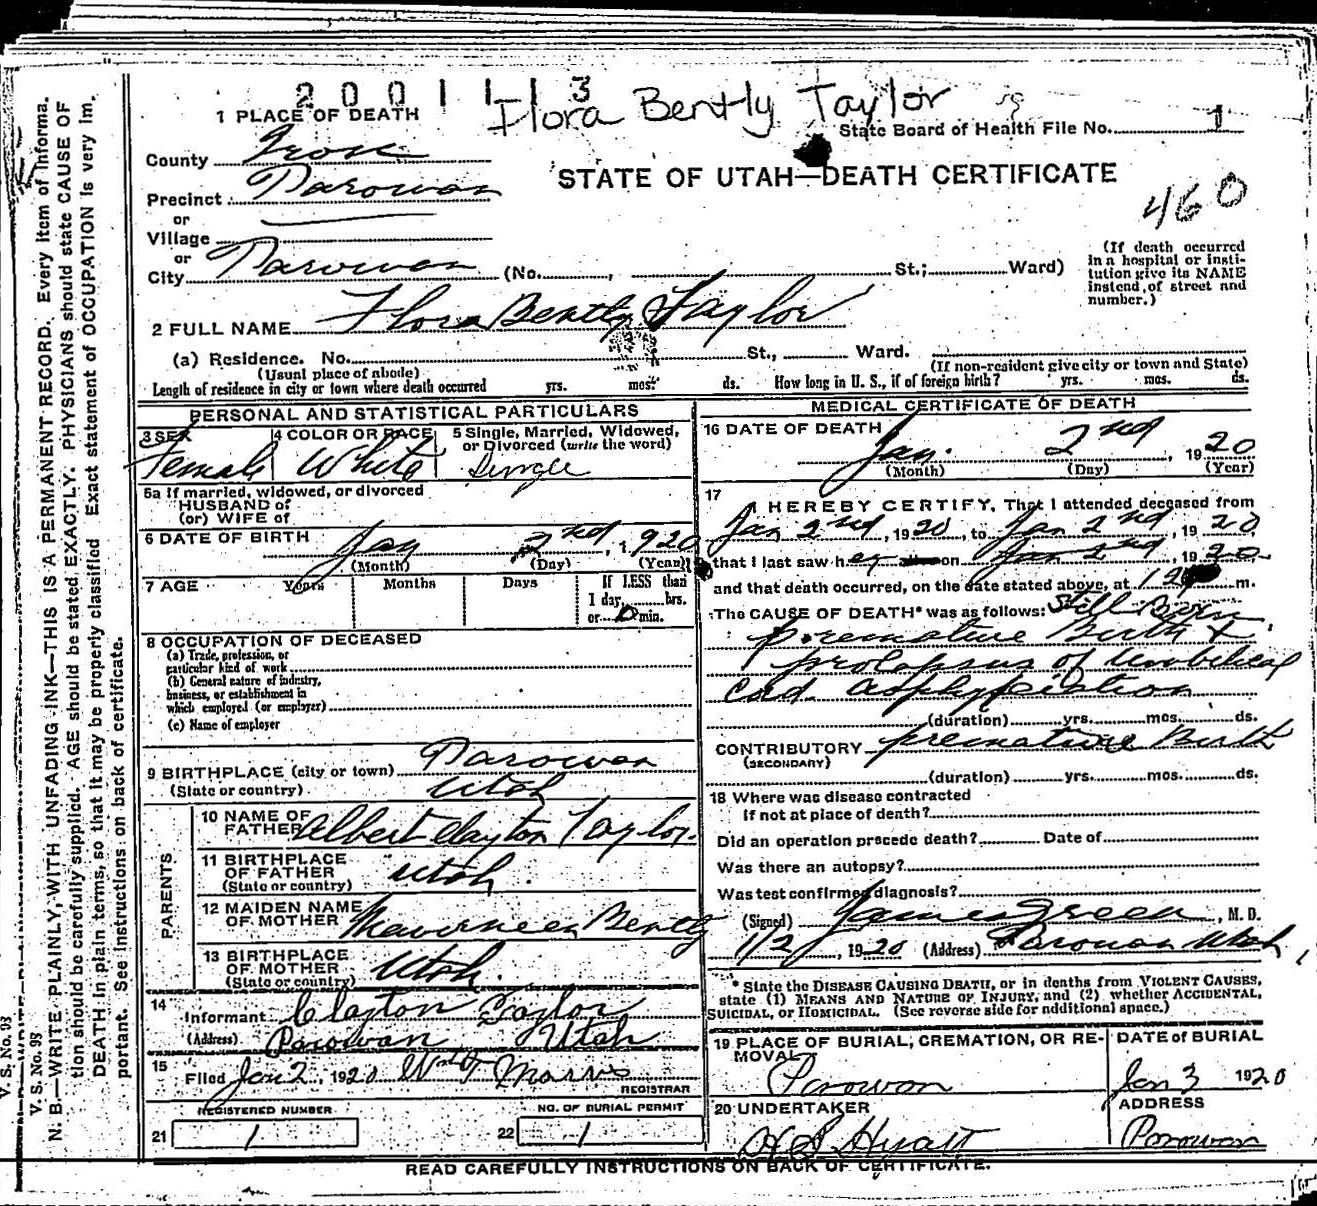 2 0 0 1 1 1 3
Flora Bently Taylor
1 PLACE OF DEATH
State Board of Health File No. 1
County Iron
STATE OF UTAH—DEATH CERTIFICATE
Precinct Parowan
460
or
Village
or
City Parowan (No. , St.; Ward)
(If death occurred
in a hospital or insti-
tution give its NAME
instead of street and
number.)
2 FULL NAME Flora Bently Taylor
(a) Residence. No. St., Ward.
(Usual place of abode)
(If non-resident give city or town and State)
Length of residence in city or town where death occurred yrs. mos. ds. How long in U. S., if of foreign birth? yrs. mos. ds.
PERSONAL AND STATISTICAL PARTICULARS
3 SEX
Female
4 COLOR OR RACE
White
5 Single, Married, Widowed,
or Divorced (write the word)
Single
5a If married, widowed, or divorced
HUSBAND of
(or) WIFE of
6 DATE OF BIRTH Jan 2nd, 1920
(Month) (Day) (Year)
7 AGE Years Months Days If LESS than
1 day, hrs.
or 0 min.
8 OCCUPATION OF DECEASED
(a) Trade, profession, or
particular kind of work
(b) General nature of industry,
business, or establishment in
which employed (or employer)
(c) Name of employer
9 BIRTHPLACE (city or town) Parowan
(State or country) Utah
PARENTS
10 NAME OF
FATHER Albert Clayton Taylor
11 BIRTHPLACE
OF FATHER
(State or country) Utah.
12 MAIDEN NAME
OF MOTHER Bently
13 BIRTHPLACE
OF MOTHER
(State or country) Utah.
14
Informant Clayton Taylor
(Address) Parowan Utah
15
Filed Jan 2, 1920 Wm T Morris
REGISTRAR
REGISTERED NUMBER
21 1
NO. OF BURIAL PERMIT
22 1
MEDICAL CERTIFICATE OF DEATH
16 DATE OF DEATH
Jan. 2nd, 1920
(Month) (Day) (Year)
17
I HEREBY CERTIFY, That I attended deceased from
Jan 2nd, 1920, to Jan 2nd, 1920,
that I last saw her on Jan 2nd, 1920
and that death occurred, on the date stated above, at 12 m.
The CAUSE OF DEATH* was as follows: Still Born
premature Birth &
prolapsus of Umbilical
cord. asphyxiation
(duration) yrs. mos. ds.
CONTRIBUTORY premature Birth
(SECONDARY)
(duration) yrs. mos. ds.
18 Where was disease contracted
If not at place of death?
Did an operation precede death? Date of
Was there an autopsy?
Was test confirmed diagnosis?
(Signed) James Green, M. D.
1/2, 1920 (Address) Parowan Utah,
* State the DISEASE CAUSING DEATH, or in deaths from VIOLENT CAUSES,
state (1) MEANS AND NATURE OF INJURY, and (2) whether ACCIDENTAL,
SUICIDAL, or HOMICIDAL. (See reverse side for additional space.)
19 PLACE OF BURIAL, CREMATION, OR RE-
MOVAL
Parowan
DATE of BURIAL
Jan 3 1920
20 UNDERTAKER
ADDRESS
Parowan
READ CAREFULLY INSTRUCTIONS ON BACK OF CERTIFICATE.
V. S. No. 93
V. S. No. 93
N. B.—WRITE PLAINLY, WITH UNFADING INK—THIS IS A PERMANENT RECORD. Every item of informa.
tion should be carefully supplied. AGE should be stated EXACTLY. PHYSICIANS should state CAUSE OF
DEATH in plain terms, so that it may be properly classified. Exact statement of OCCUPATION is very im.
portant. See instructions on back of certificate.